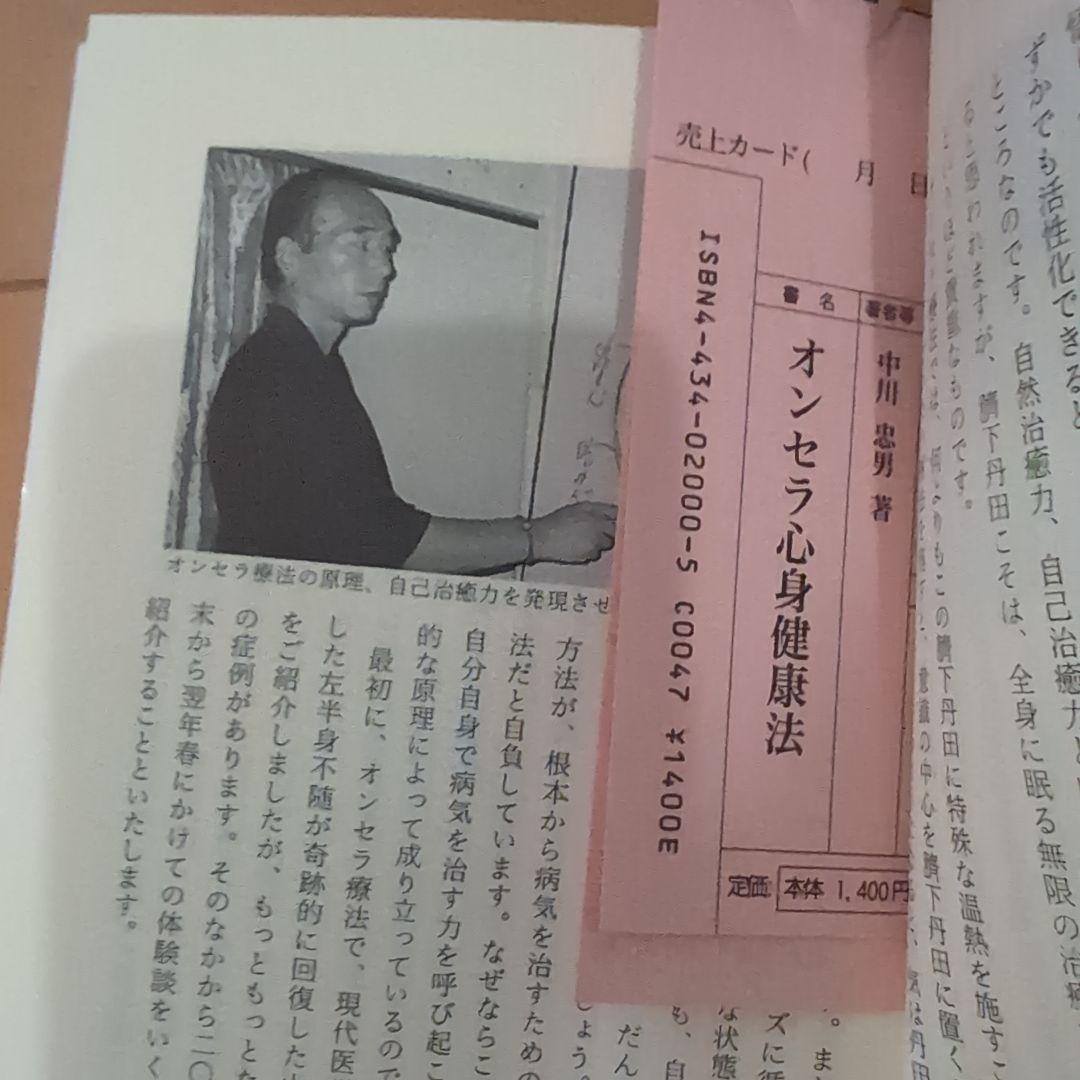 ずかでも活性化できると
ところなのです。自然治癒力、自己治癒力と
ると思われますが、臍下丹田こそは、全身に眠る無限の治癒
ほど貴重なものです。
何よりもこの臍下丹田に特殊な温熱を施すこ
意識の中心を臍下丹田に置く
気は丹田
売上カード( 月 日
書名
著者等
中川 忠男 著
オンセラ心身健康法
ISBN4-434-02000-5 C0047 ¥1400E
定価 本体 1,400円
オンセラ療法の原理、自己治癒力を発現させ
。ま
ズに循
な状態
も、自
だん
しょう。
方法が、根本から病気を治すための
法だと自負しています。なぜならこ
自分自身で病気を治す力を呼び起こ
的な原理によって成り立っているので
最初に、オンセラ療法で、現代医
した左半身不随が奇跡的に回復した
をご紹介しましたが、もっともっとた
の症例があります。そのなかから二〇
末から翌年春にかけての体験談をいく
紹介することといたします。